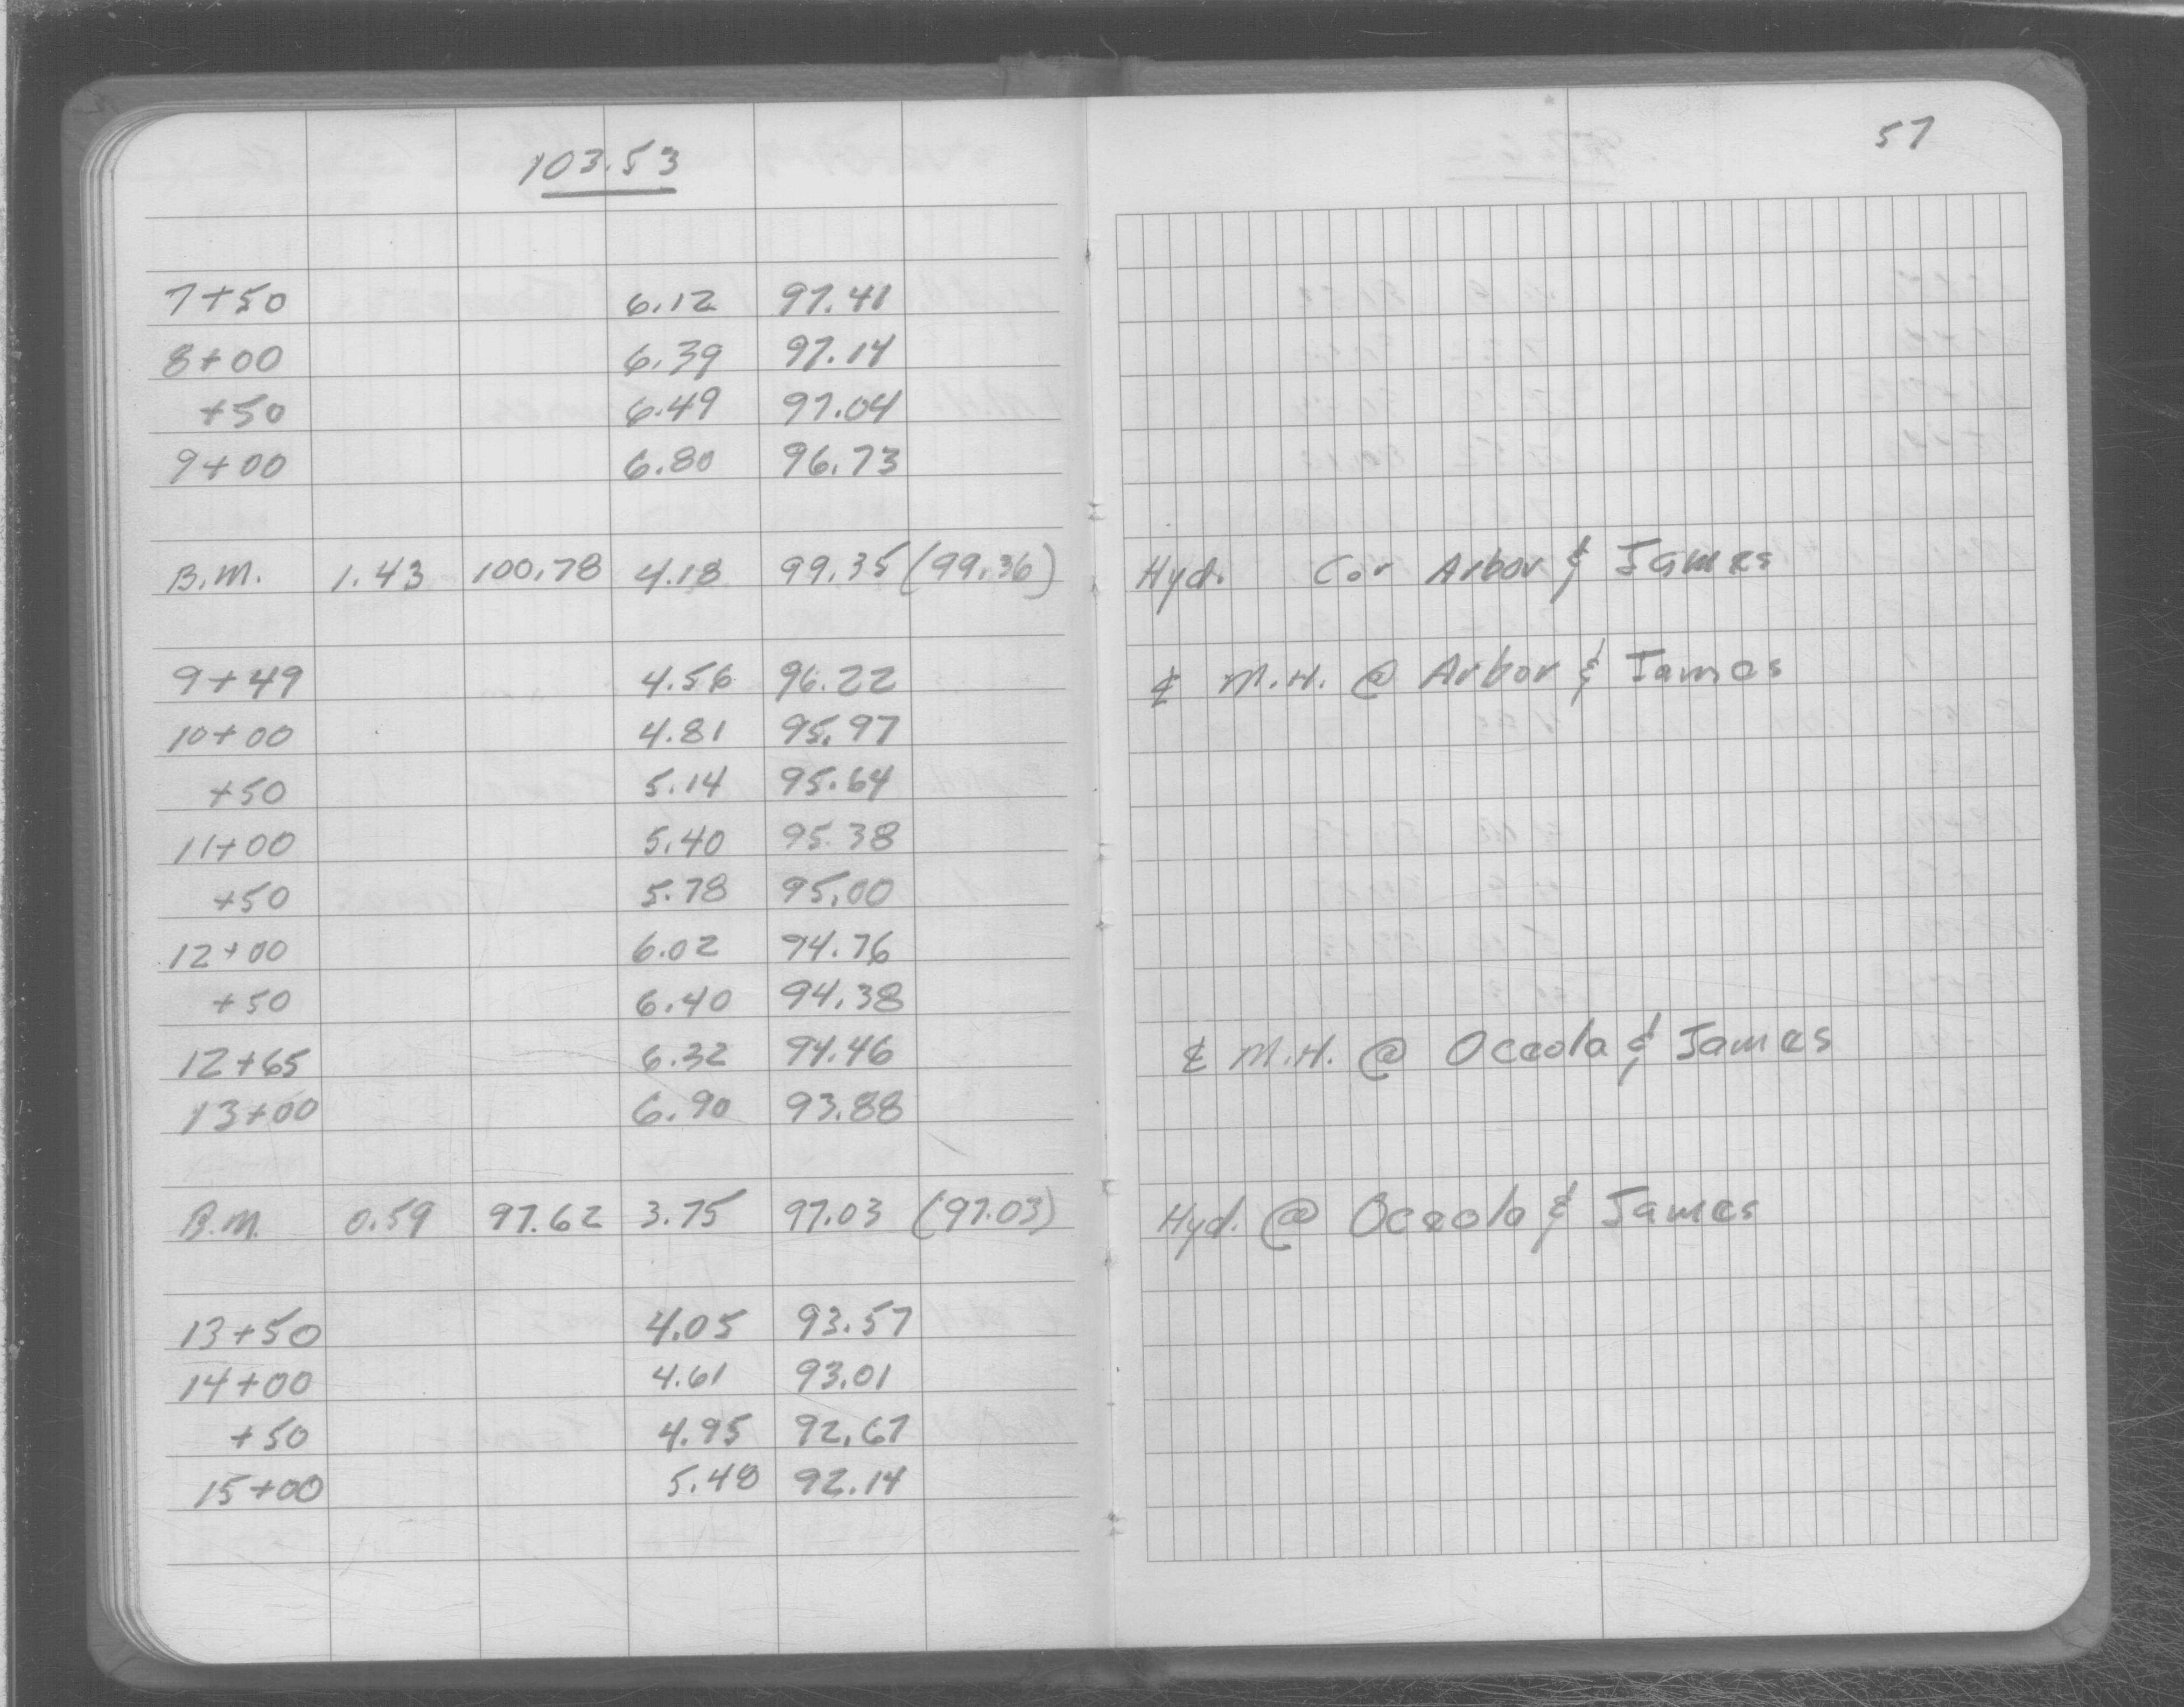 103.53
57
7+50 6.12 97.41
8+00 6.39 97.14
+50 6.49 97.04
9+00 6.80 96.73
B.M. 1.43 100.78 4.18 99.35 (99.36) Hyd. Cor Arbor & James
9+49 4.56 96.22 ₵ M.H. @ Arbor & James
10+00 4.81 95.97
+50 5.14 95.64
11+00 5.40 95.38
+50 5.78 95.00
12+00 6.02 94.76
+50 6.40 94.38
12+65 6.32 94.46 ₵ M.H. @ Oceola & James
13+00 6.90 93.88
B.M. 0.59 97.62 3.75 97.03 (97.03) Hyd. @ Oceola & James
13+50 4.05 93.57
14+00 4.61 93.01
+50 4.95 92.67
15+00 5.48 92.14